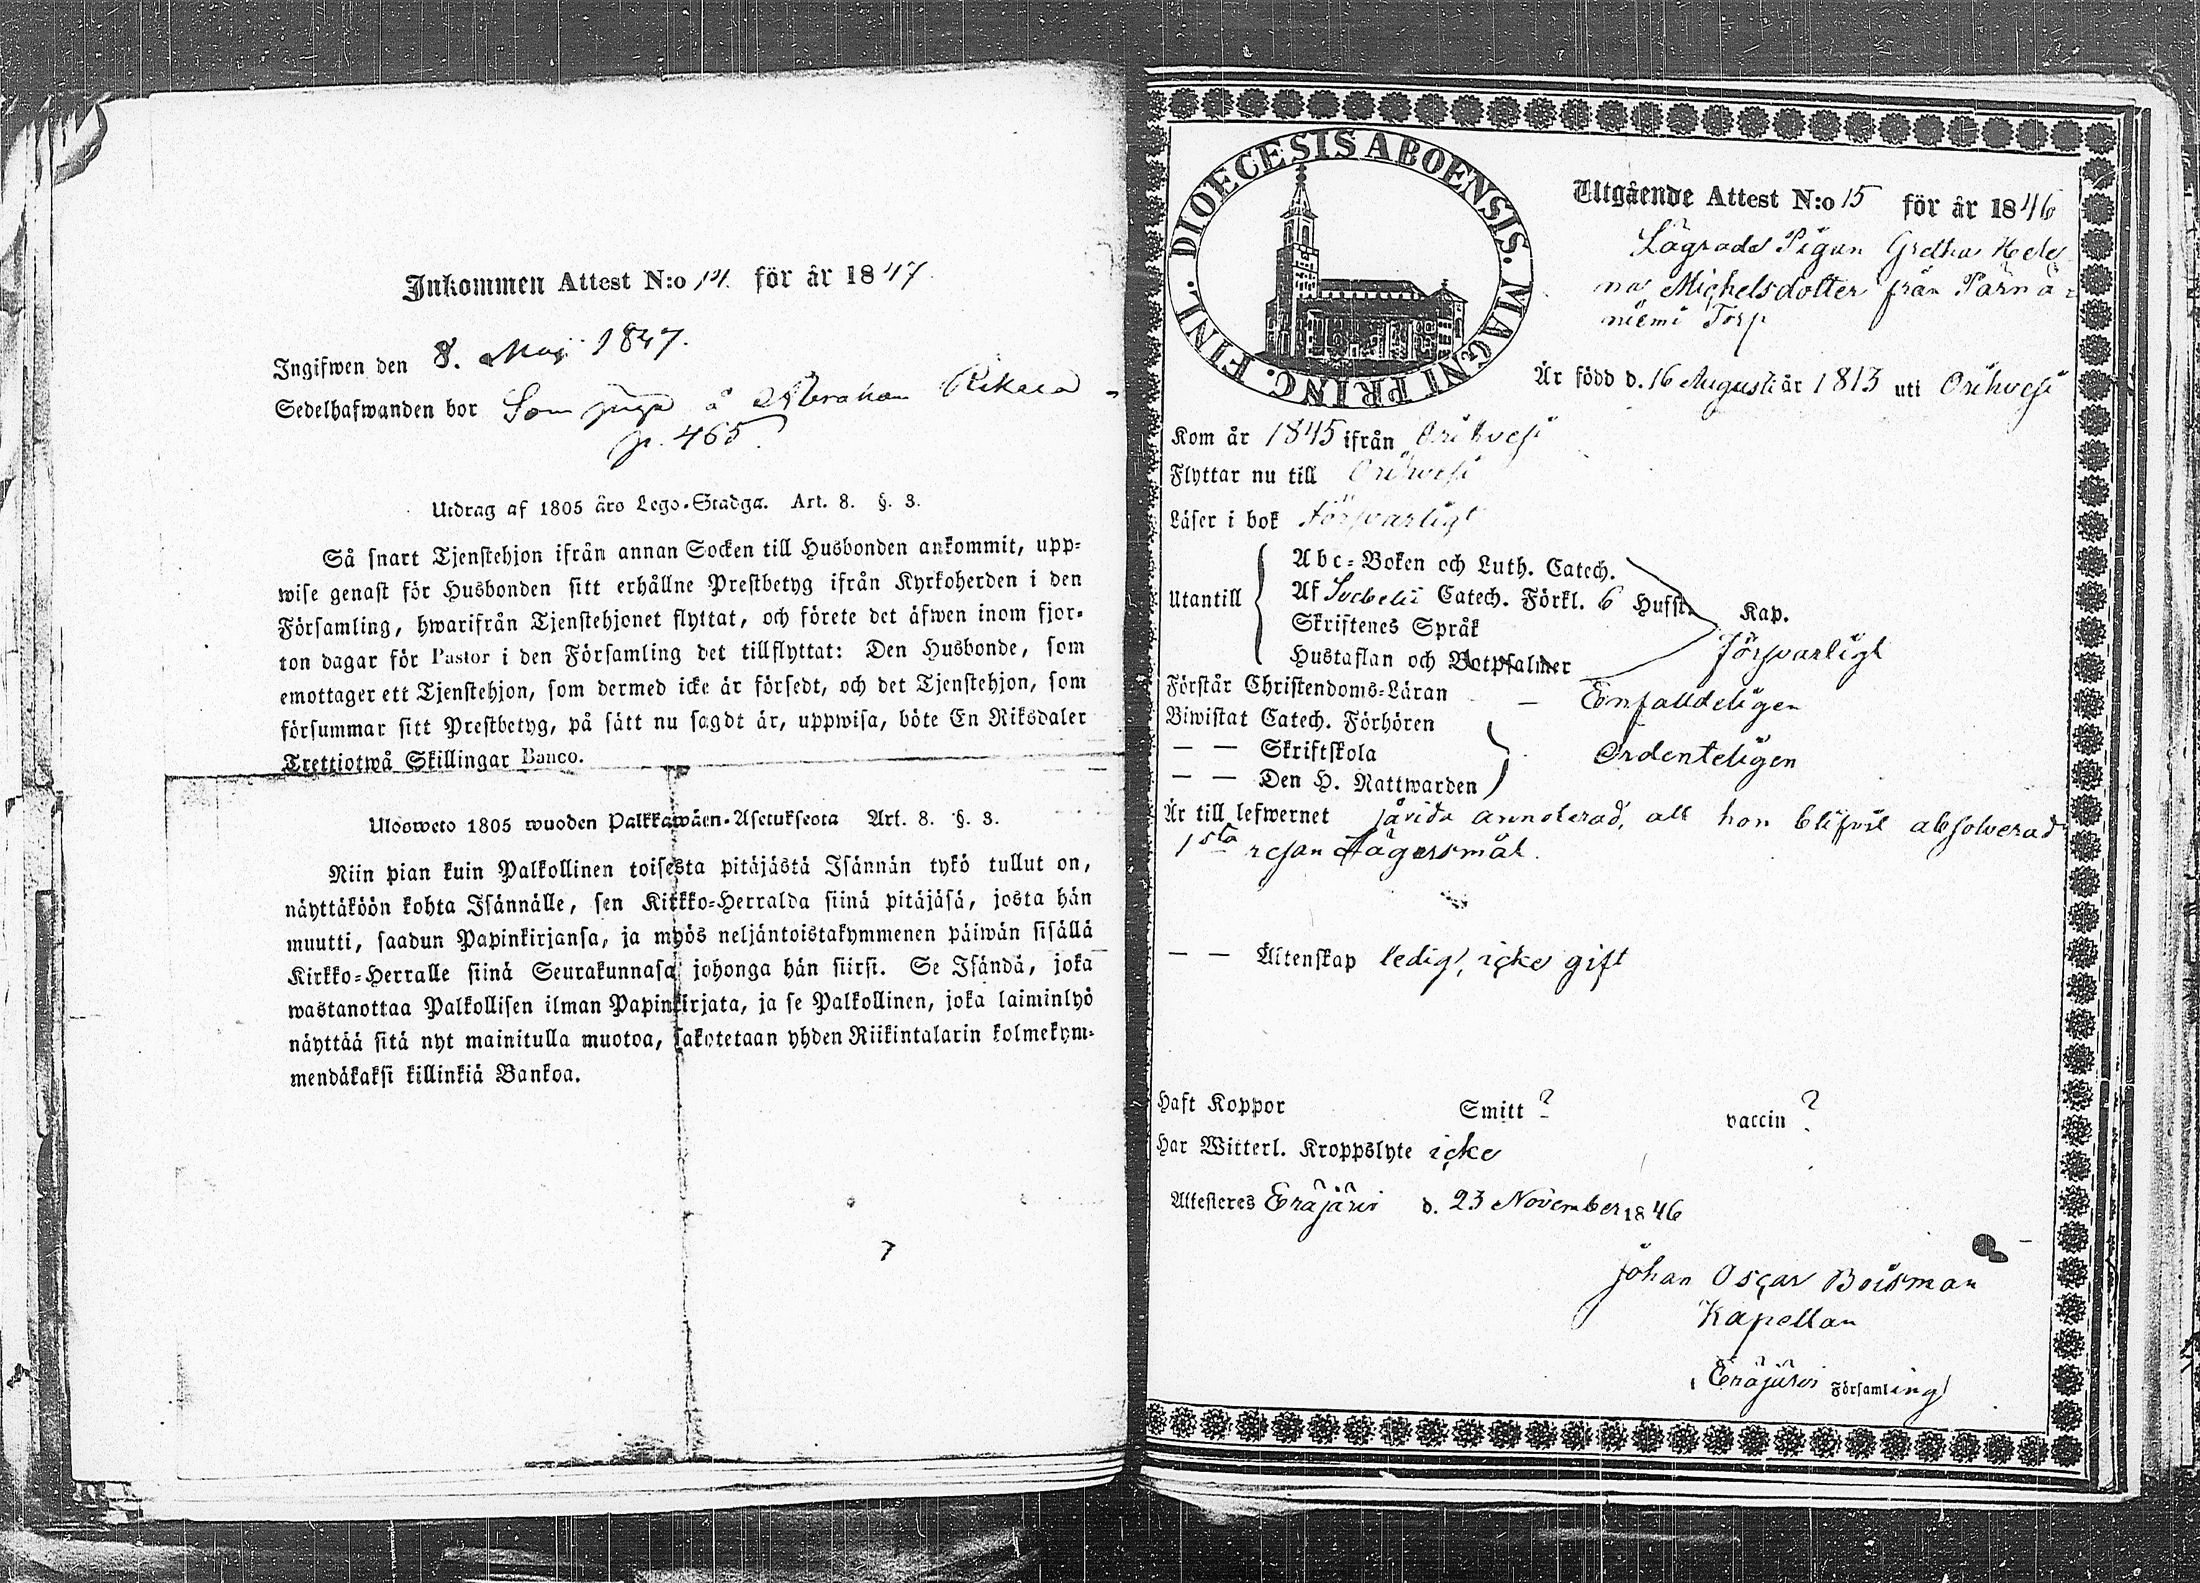 Inkommen Attest N:o 14. för år 1847
Ingifwen den 8. Maj 1847.
Sedelhafwanden bor Som piga å Abraham
p. 465.
Utdrag af 1805 års Lego-Stadga. Art. 8. §. 3.
Så snart Tjenstehjon ifrån annan Socken till Husbonden ankommit, upp-
wise genast för Husbonden sitt erhållne Prestbetyg ifrån Kyrkoherden i den
Församling, hwarifrån Tjenstehjonet flyttat, och förete det äfwen inom fjor-
ton dagar för Pastor i den Församling det tillflyttat: Den Husbonde, som
emottager ett Tjenstehjon, som dermed icke är försedt, och det Tjenstehjon, som
försummar sitt Prestbetyg, på sätt nu sagdt är, uppwisa, böte En Riksdaler
Trettiotwå Skillingar Banco.
Ulosweto 1805 wuoden Palkkawäen-Asetuksesta Art. 8. §. 3.
Niin pian kuin Palkollinen toisesta pitäjästä Isännän tykö tullut on,
näyttäköön kohta Isännälle, sen Kirkko-Herralda siinä pitäjäsä, josta hän
muutti, saadun Papinkirjansa, ja myös neljäntoistakymmenen päiwän sisällä
Kirkko-Herralle siinä Seurakunnasa johonga hän siirsi. Se Isändä, joka
wastanottaa Palkollisen ilman Papinkirjata, ja se Palkollinen, joka laiminlyö
näyttää sitä nyt mainitulla muotoa, sakotetaan yhden Riikintalarin kolmekym-
mendäkaksi killinkiä Bankoa.
DIOECESIS ABOENSIS. MAGNI PRINC. FINL.
Utgående Attest N:o 15 för år 1846
Lägrade Pigan Gretha Hele
na Michelsdotter från Pärnä=
niemi Torp
Är född d. 16 Augusti år 1813 uti Orihvesi
Kom år 1845 ifrån Orihvesi
Flyttar nu till Orihvesi
Läser i bok försvarligt
Utantill
Abc-Boken och Luth. Catech.
Af Svebelii Catech. Förkl. 6 Hufst. Kap.
Skriftenes Språk
Hustaflan och Botpsalmer
försvarligt
Förstår Christendoms-Läran – Enfalldeligen
Biwistat Catech. Förhören
— — Skriftskola Ordenteligen
— — Den H. Nattwarden
Är till lefwernet annoterad, att hon blifvit absolverad
1sta resan Lägersmål.
— — Äktenskap ledig, icke gift
Haft Koppor Smitt ? vaccin ?
Har Witterl. Kroppslyte icke
Attesteres Eräjärvi d. 23 November 1846
Johan Oscar Boisman
Kapellan
i Eräjärvi Församling